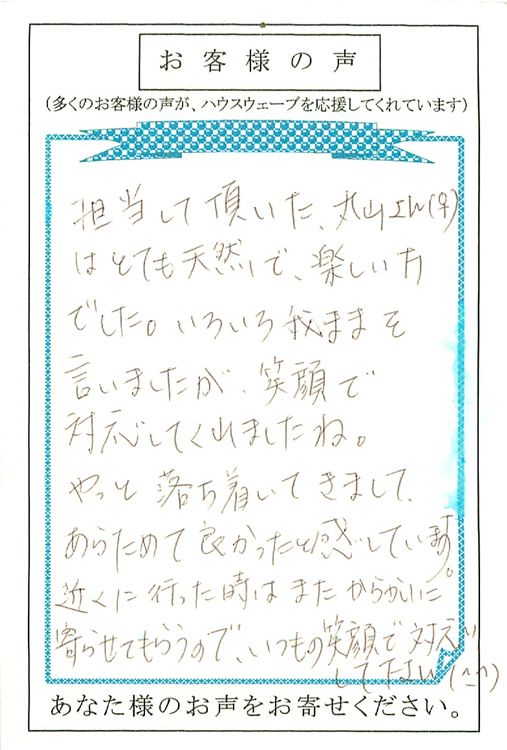 お客様の声
（多くのお客様の声が、ハウスウェーブを応援してくれています）
担当して頂いた、丸山さん(♀)
はとても天然で、楽しい方
でした。いろいろ我ままを
言いましたが、笑顔で
対応してくれましたね。
やっと落ち着いてきまして、
あらためて良かったと感じています。
近くに行った時はまたからかいに
寄らせてもらうので、いつもの笑顔で対応
して下さい(^-^)
あなた様のお声をお寄せください。